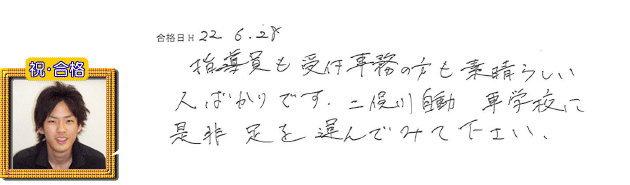 合格日 H 22 6.28
祝・合格
指導員も受付事務の方も素晴らしい
人ばかりです. 二俣川自動車学校に
是非足を運んでみて下さい、